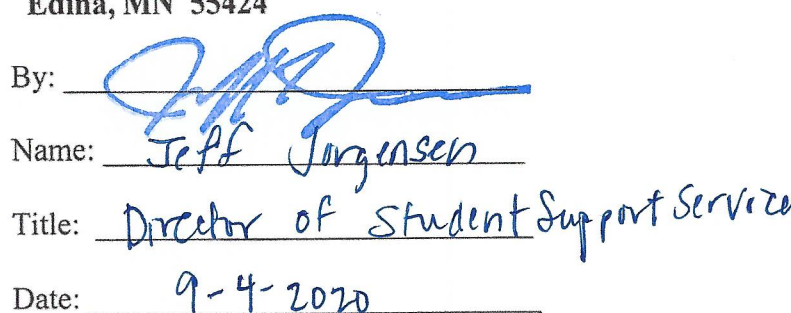 Edina, MN 55424
By:
Name: Jeff Jorgensen
Title: Director of Student Support Service
Date: 9-4-2020